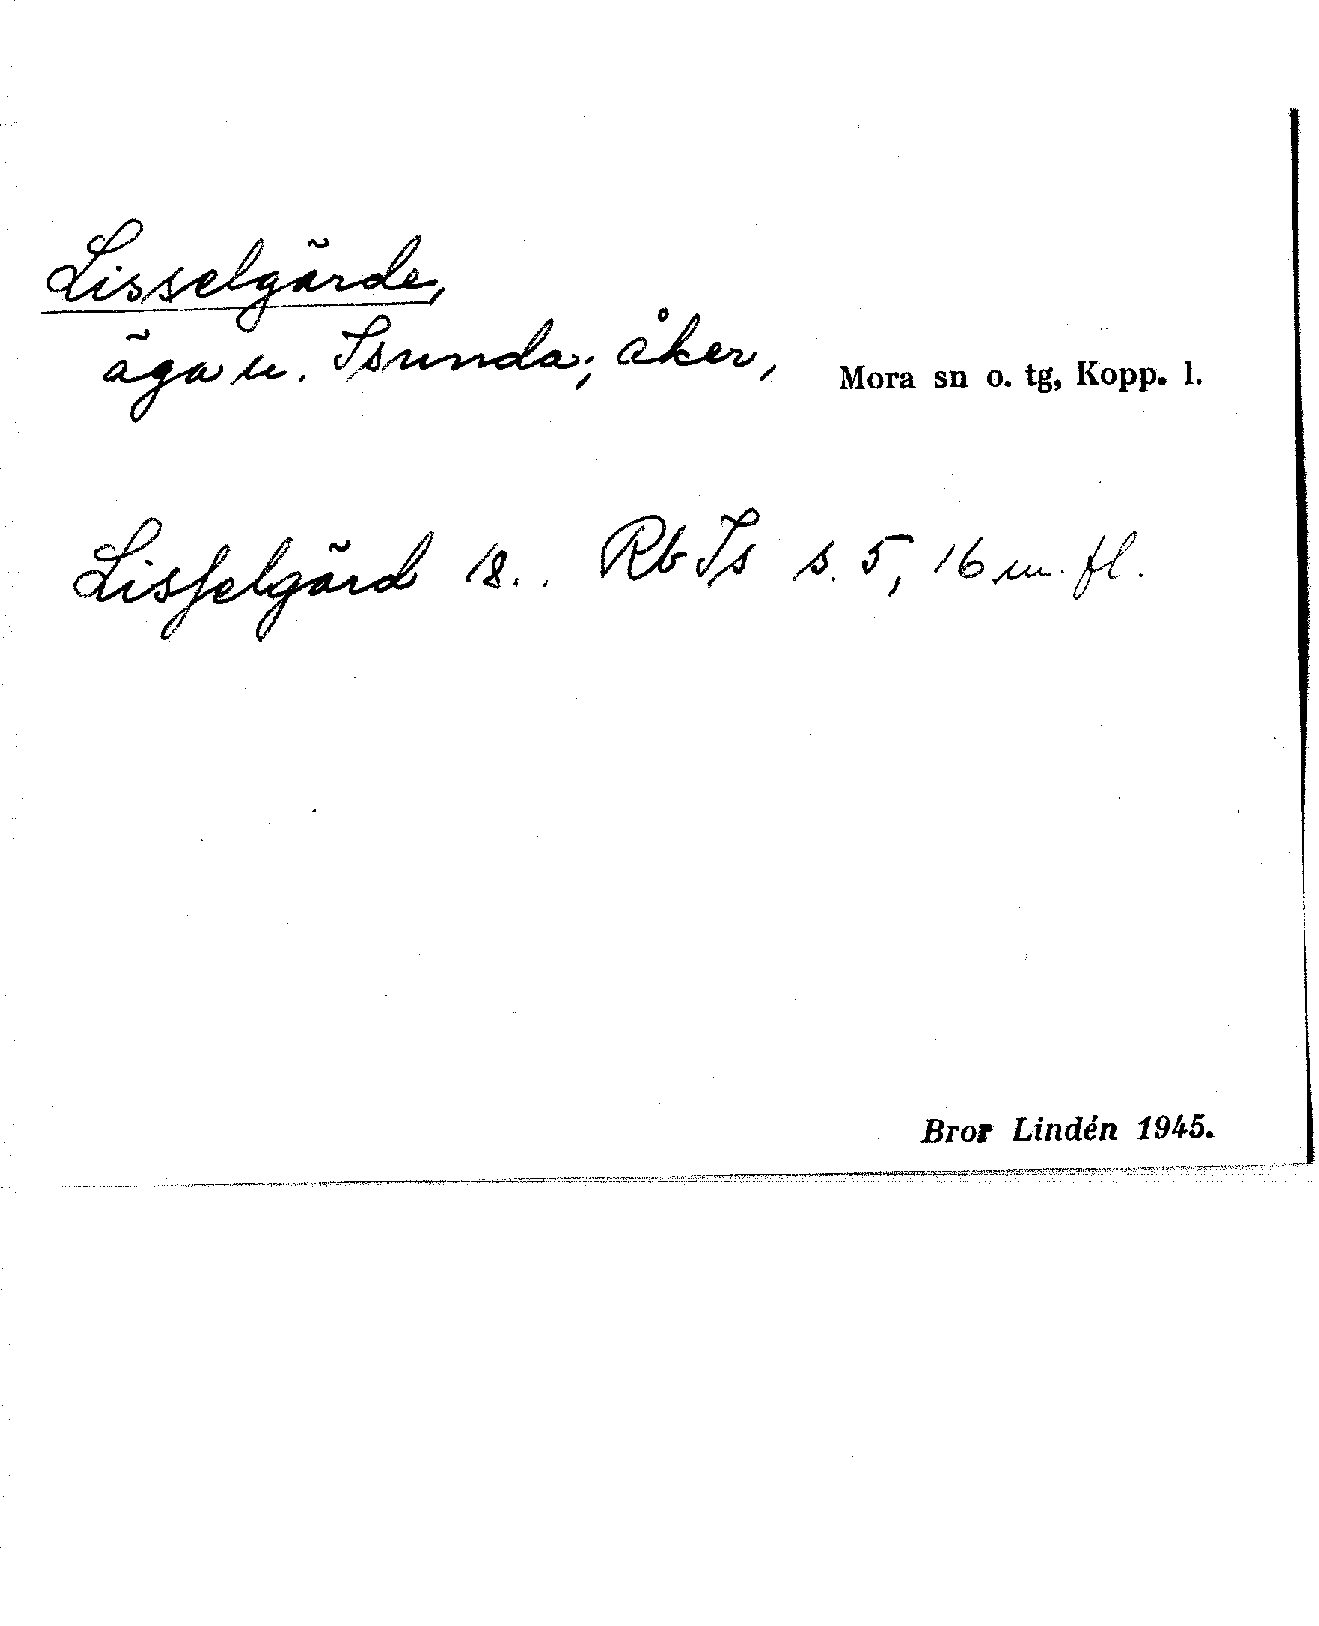 Lisselgärde,
äga u. Isunda; åker, Mora sn o. tg, Kopp. l.
Lisſelgärd 18.. Rb Is s. 5, 16 m. fl.
Bror Lindén 1945.